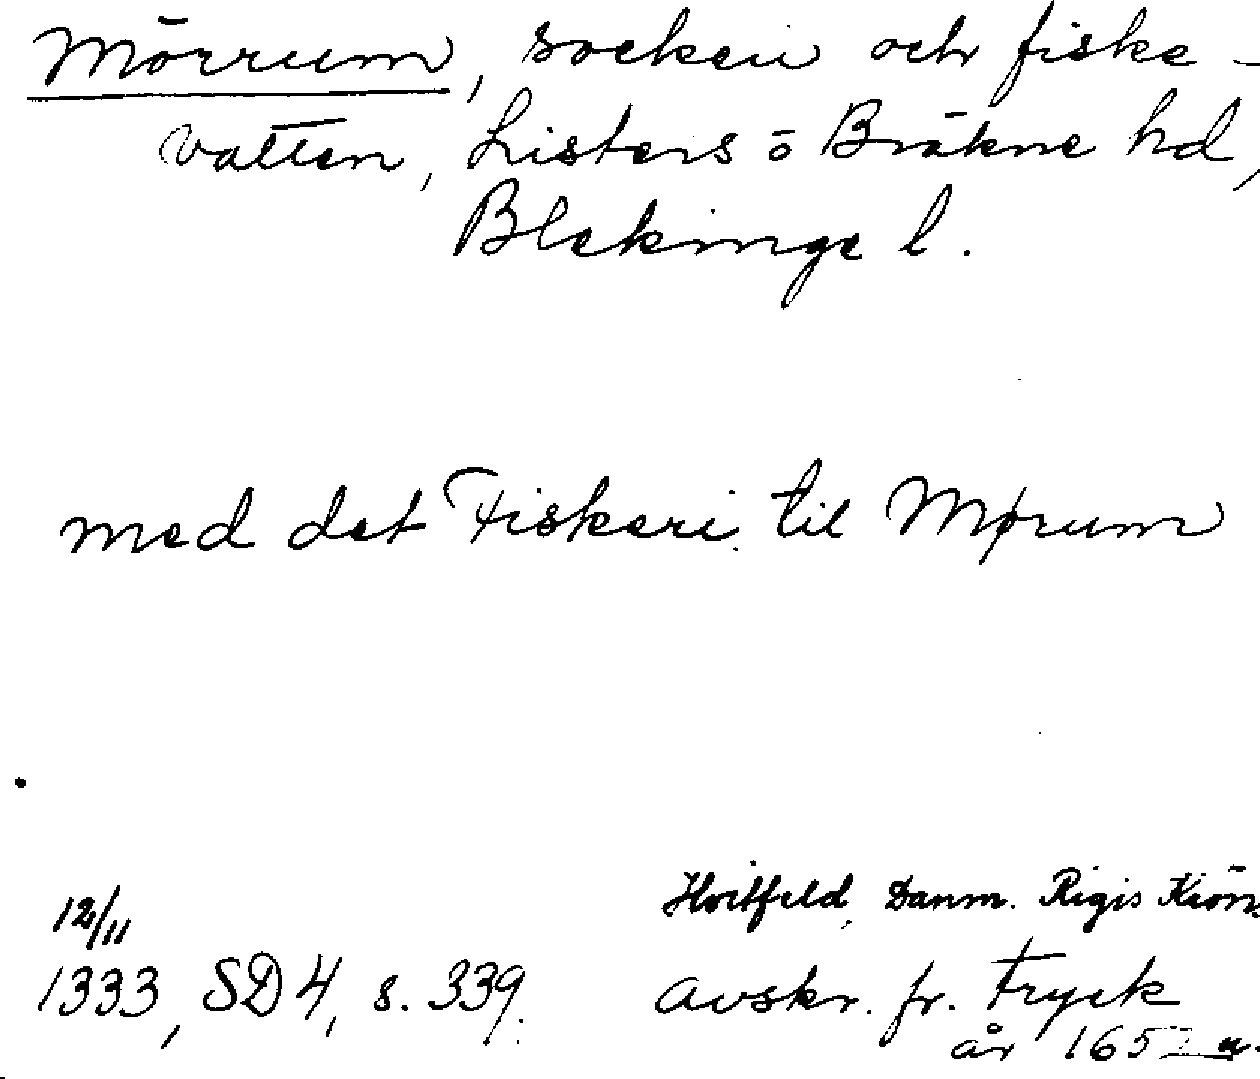 Mörrum, socken och fiske-
vatten, Listers o Bräkne hd,
Blekinge l.
med det Fiskeri til Mørum
12/11
1333, SD 4, s. 339.
Hvitfeld, Danm. Rigis Krön
avskr. fr. tryck
år 165